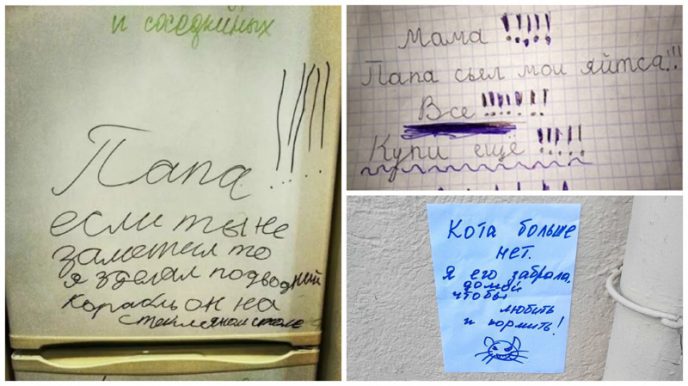 и соседкиных
Папа !!!!!
если ты не
заметил то
я зделал подводний
корабль он на
столе
Мама !!!!!
Папа сьел мои яйтса!!!
Все !!!!!!!
Купи ещё !!!!!
Кота больше
нет.
Я его забрала
домой
чтобы
любить
и кормить!